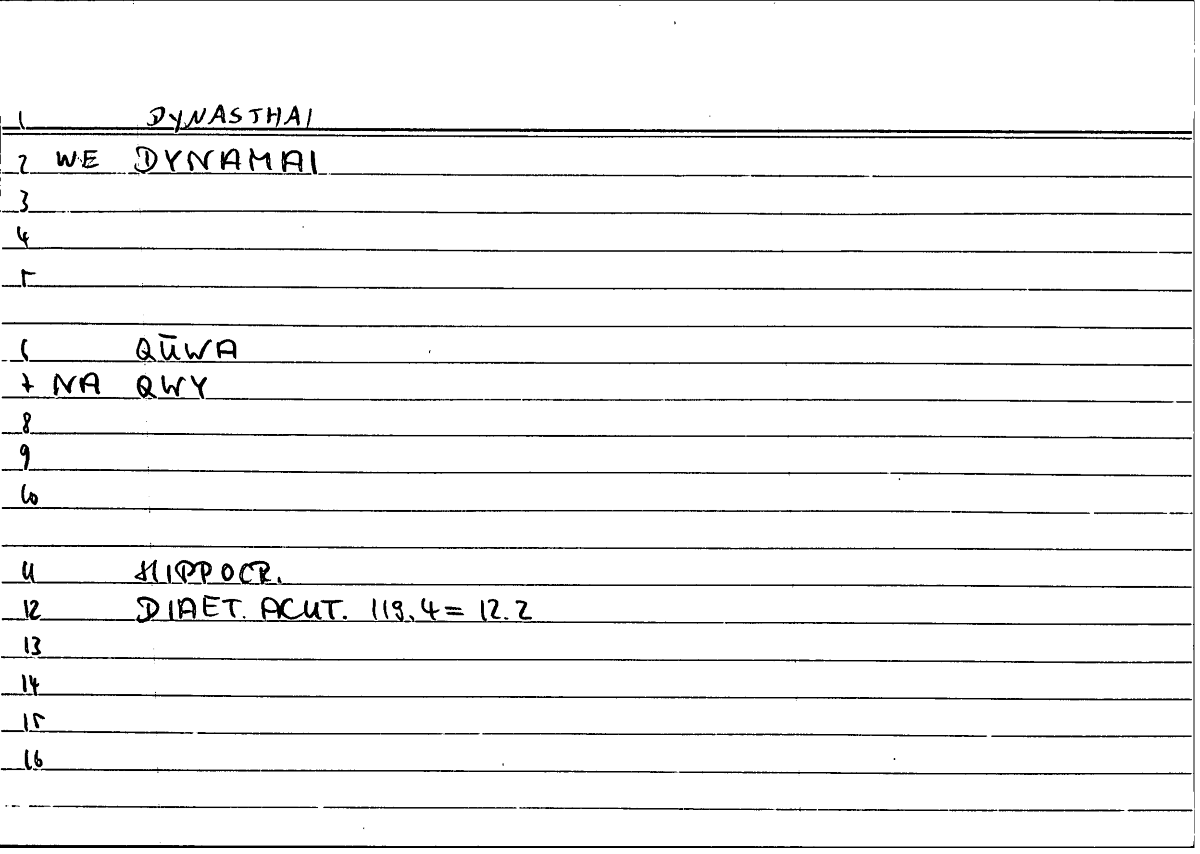 1 DYNASTHAI
2 WE DYNAMAI
3
4
5
6 QŪWA
7 NA QWY
8
9
10
11 HIPPOCR.
12 DIAET. ACUT. 119.4 = 12.2
13
14
15
16